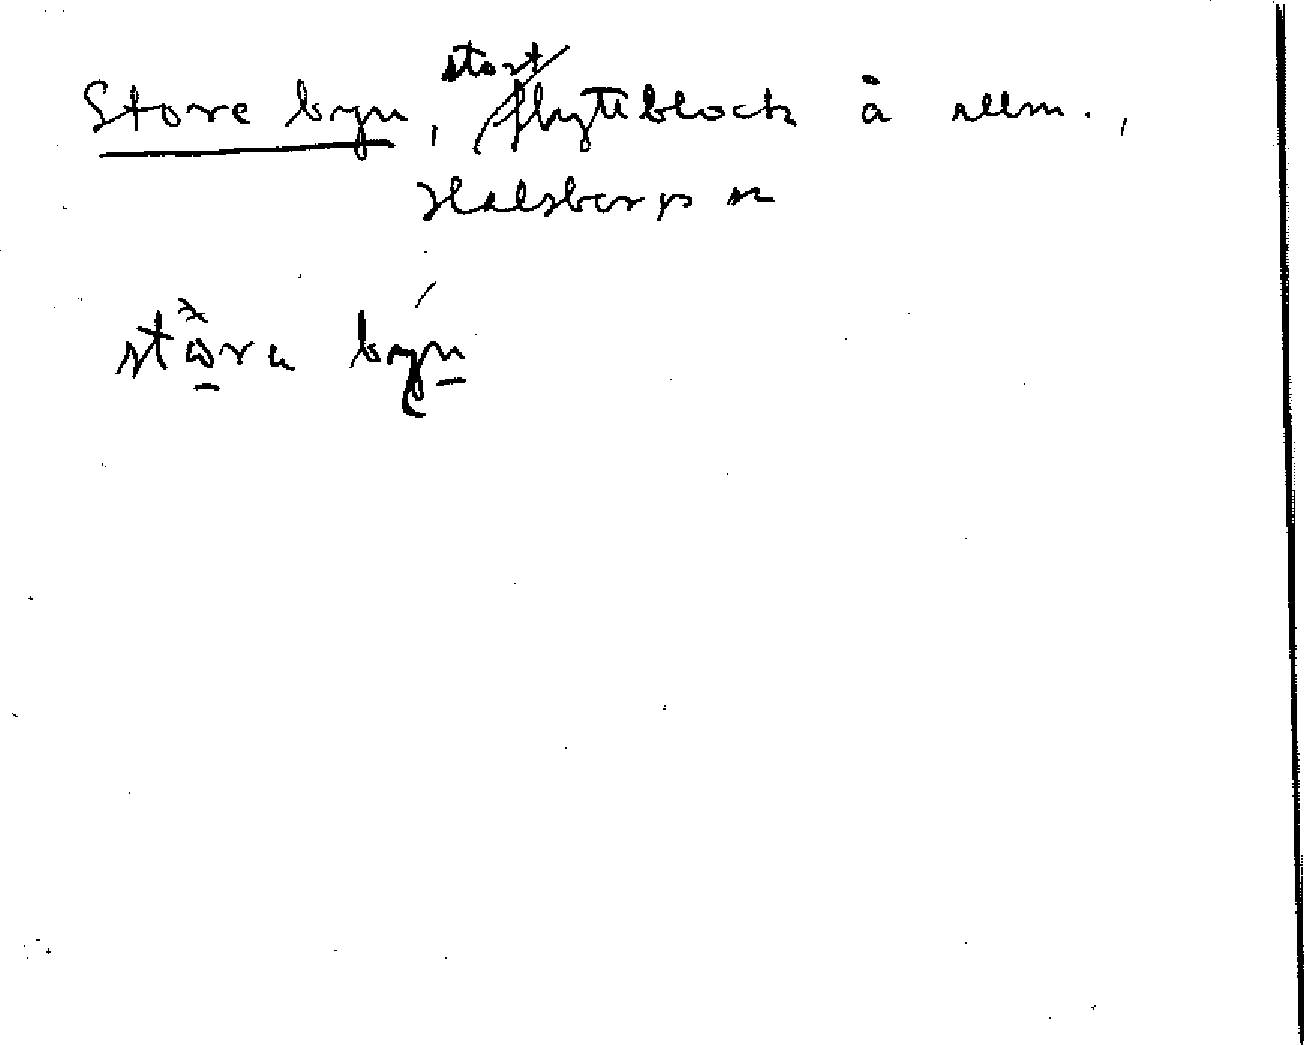 Store byn, stort flyttblock å allm.,
Halsbergs sn
ståra byn